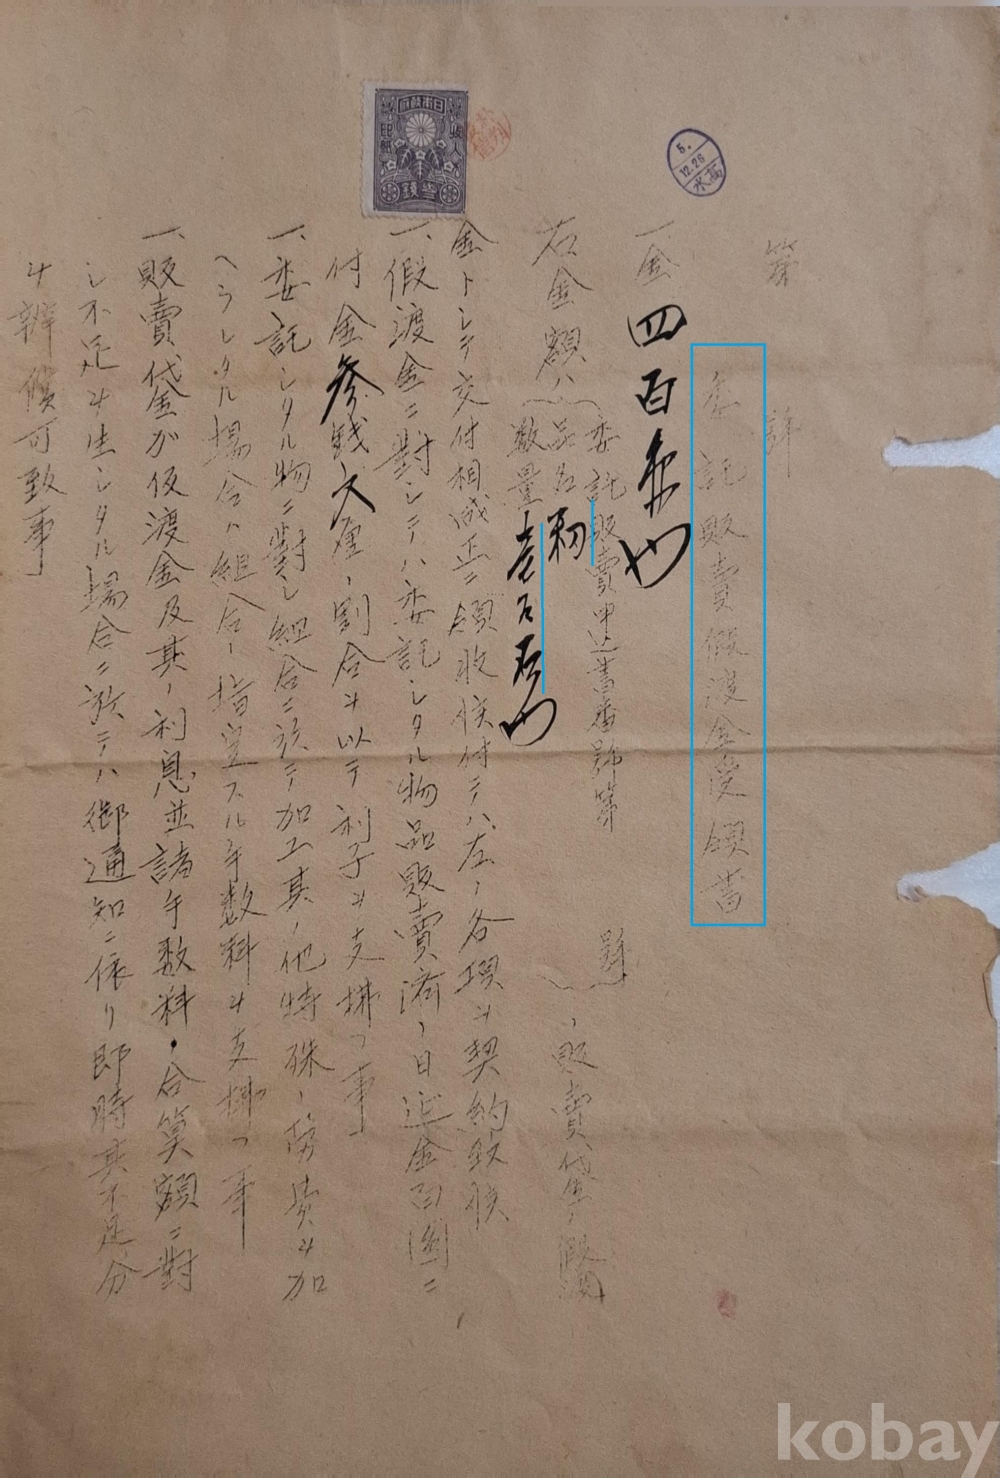 第　　號
委託販賣假渡金受領書
一金四百円也
右金額ハ
委託販賣申込書番號第　　號
品名 籾
数量
ノ販賣代金ノ假渡
金トシテ交付相成正ニ領收候付テハ左ノ各項ヲ契約致候
一、假渡金ニ對シテハ委託シタル物品販賣済ノ日迄金百圓ニ
付金参銭　厘ノ割合ヲ以テ利子ヲ支拂フ事
一、委託シタル物ニ對シ組合ニ於テ加工其ノ他特殊ノ労費ヲ加
ヘラレタル場合ハ組合ノ指定スル手数料ヲ支拂フ事
一、販賣代金ガ仮渡金及其ノ利息並諸手数料ノ合算額ニ對
シ不足ヲ生シタル場合ニ於テハ御通知ニ依リ即時其不足分
ヲ辨償可致事
日本政府
収入印紙
参銭
5.
12.26
水高
kobay